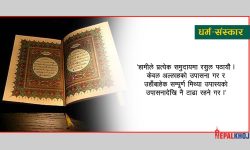 धर्म-संस्कार
'हामीले प्रत्येक समुदायमा रसूल पठायौं ।
केवल अल्लाहको उपासना गर र
उहाँबाहेक सम्पूर्ण मिथ्या उपास्यको
उपासनादेखि नै टाढा रहने गर ।'
NEPALKHOJ